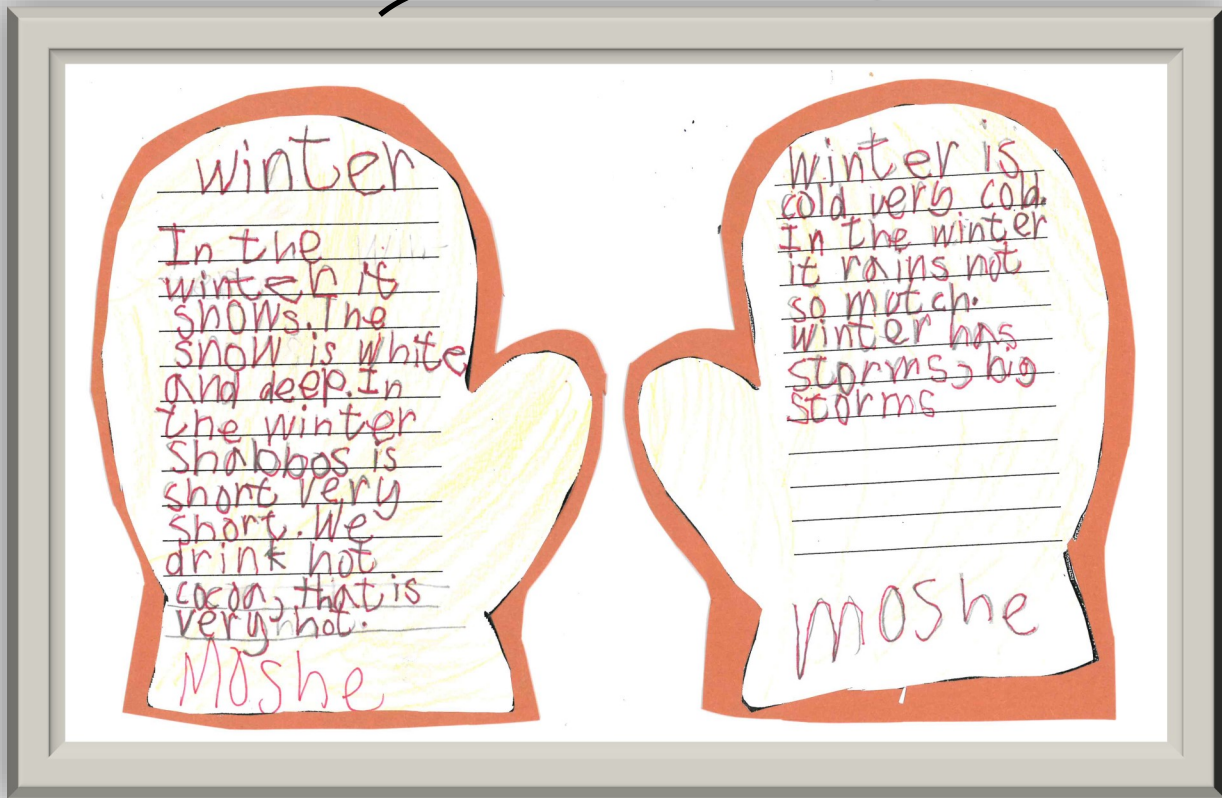 winter
In the
winter it
snows. The
snow is white
and deep. In
the winter
Shabbos is
short very
short. We
drink hot
cocoa, that is
very hot.
Moshe
winter is
cold very cold.
In the winter
it rains not
so mutch.
winter has
storms, big
storms
moshe